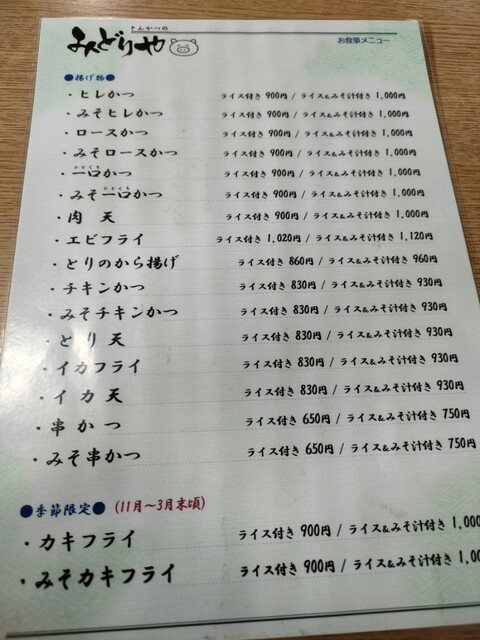 とんかつの
みどりや
お食事メニュー
●揚げ物●
・ヒレかつ ライス付き 900円 / ライス&みそ汁付き 1,000円
・みそヒレかつ ライス付き 900円 / ライス&みそ汁付き 1,000円
・ロースかつ ライス付き 900円 / ライス&みそ汁付き 1,000円
・みそロースかつ ライス付き 900円 / ライス&みそ汁付き 1,000円
・一口かつ ライス付き 900円 / ライス&みそ汁付き 1,000円
・みそ一口かつ ライス付き 900円 / ライス&みそ汁付き 1,000円
・肉 天 ライス付き 900円 / ライス&みそ汁付き 1,000円
・エビフライ ライス付き 1,020円 / ライス&みそ汁付き 1,120円
・とりのから揚げ ライス付き 860円 / ライス&みそ汁付き 960円
・チキンかつ ライス付き 830円 / ライス&みそ汁付き 930円
・みそチキンかつ ライス付き 830円 / ライス&みそ汁付き 930円
・とり天 ライス付き 830円 / ライス&みそ汁付き 930円
・イカフライ ライス付き 830円 / ライス&みそ汁付き 930円
・イカ天 ライス付き 830円 / ライス&みそ汁付き 930円
・串かつ ライス付き 650円 / ライス&みそ汁付き 750円
・みそ串かつ ライス付き 650円 / ライス&みそ汁付き 750円
●季節限定● (11月〜3月末頃)
・カキフライ ライス付き 900円 / ライス&みそ汁付き 1,000
・みそカキフライ ライス付き 900円 / ライス&みそ汁付き 1,00